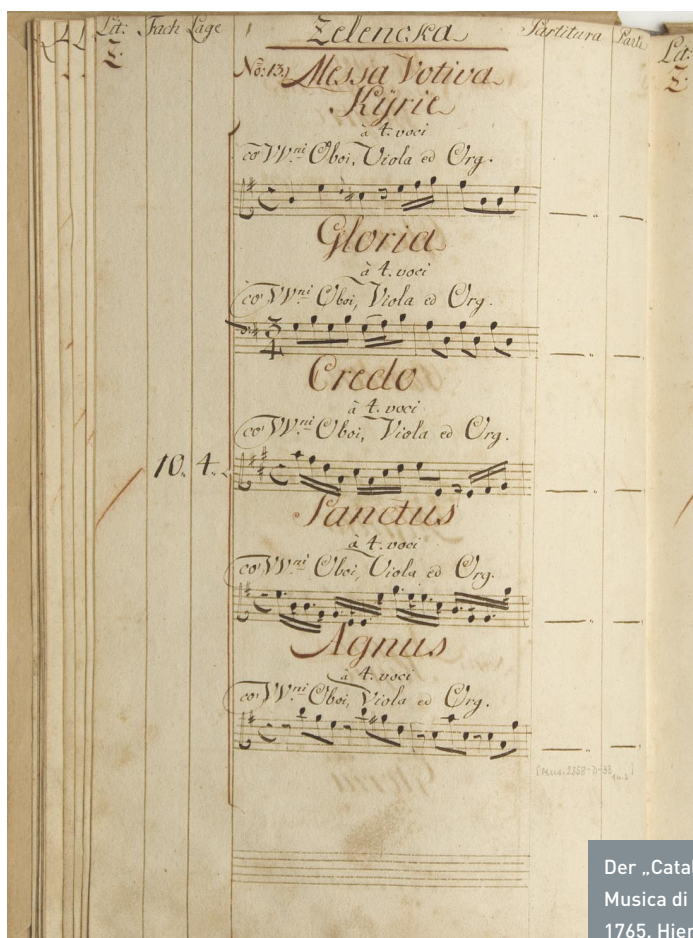 Lit: Fach Lage Zelencka Partitura Parti Lit:
Z. Z.
No: 13. Messa Votiva
Kÿrie
à 4. voci
co' VV.ni Oboi, Viola ed Org.
Gloria
à 4. voci
co' VV.ni Oboi, Viola ed Org.
3
4
Credo
à 4. voci
co' VV.ni Oboi, Viola ed Org.
10. 4.
Sanctus
à 4. voci
co' VV.ni Oboi, Viola ed Org.
Agnus
à 4. voci
co' VV.ni Oboi, Viola ed Org.
Der „Catal
Musica di
1765. Hier